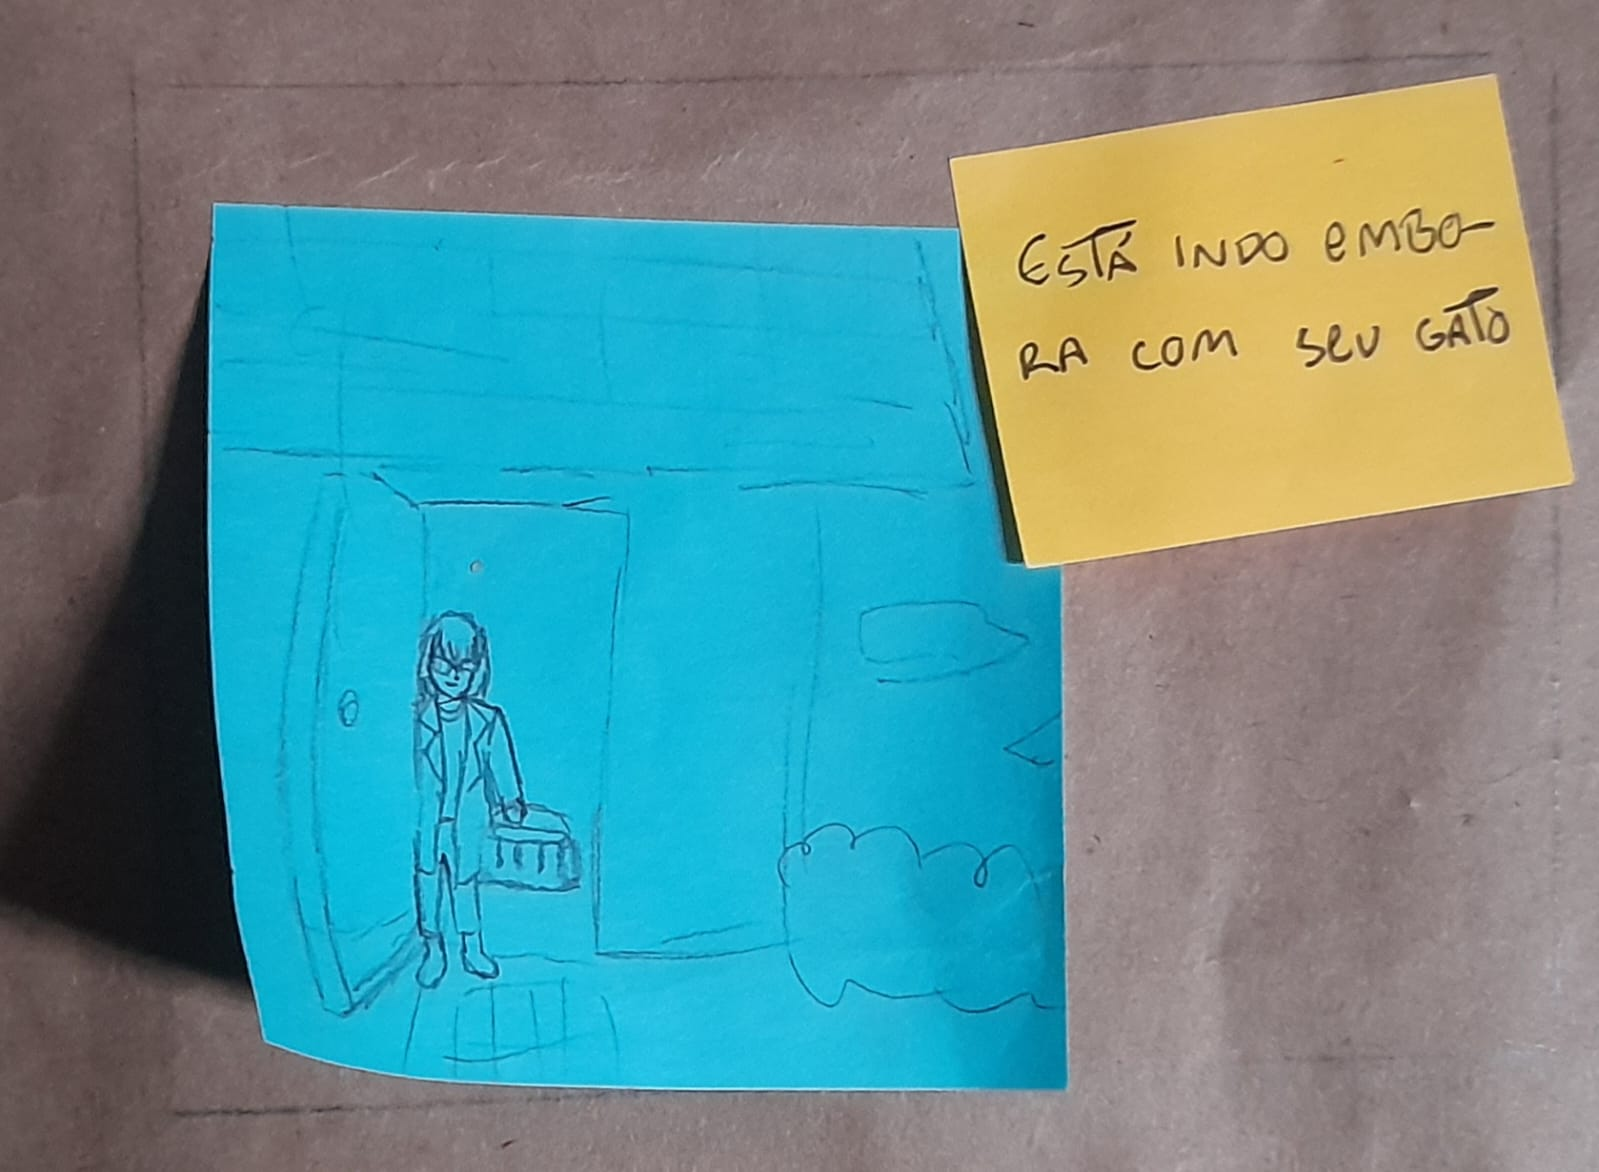 ESTÁ INDO EMBO-
RA COM SEU GATO